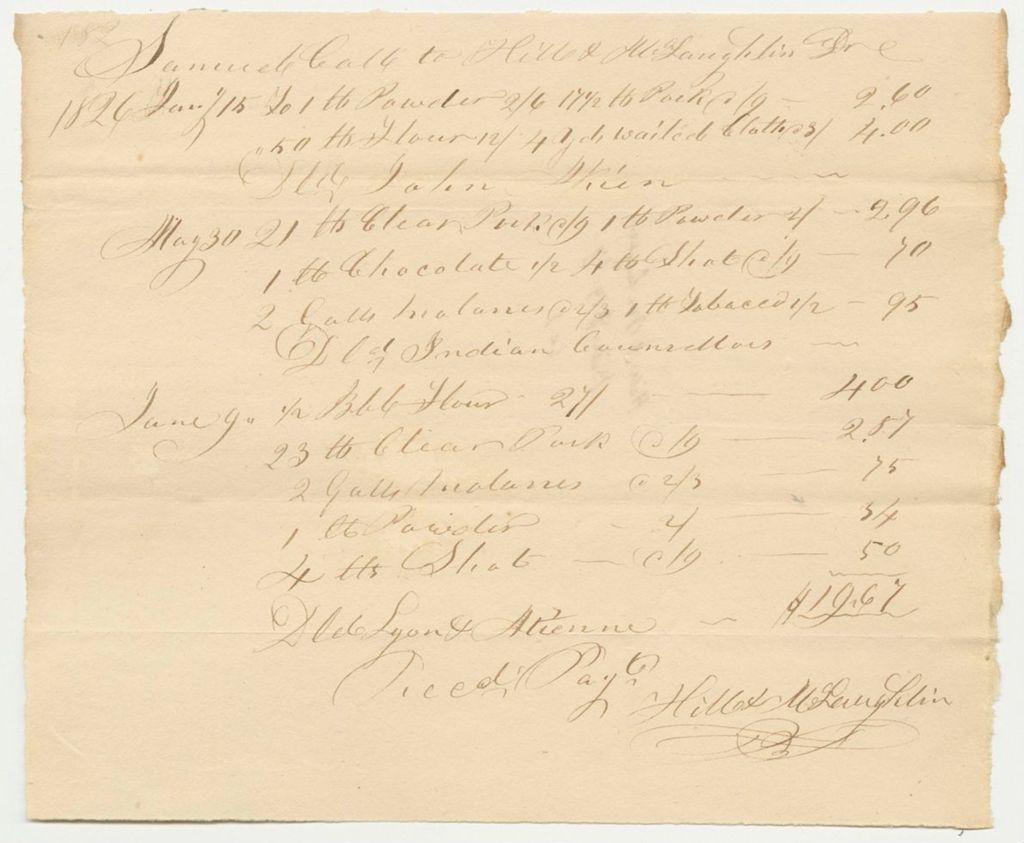 Samuel Call to Hill & McLaughlin Dr
1826 Jany 15 To 1 lb Powder 2/6 17 1/2 lb Pork @ /9 - 2.60
" 50 lb Flour 12/ 4 Yds waited Cloth @ 3/ 4.00
Dld John
May 30 21 lb Clear Pork @ /9 1 lb Powder 2/ - 2.96
1 lb Chocolate 1/2 4 lb Shot @ /9 - 70
2 Galls molasses @ 2/3 1 lb Tobacco 1/2 - 95
Dld Indian Counsellors
June 9 " 1/2 Bbl Flour 27/ - 400
23 lb Clear Pork @ /9 - 2.87
2 Galls molasses @ 2/3 - 75
1 lb Powder - 2/ - 34
4 lbs Shot - @ /9 - 50
$19.67
Dld Lyon & Atienne
Recd Payt
Hill & McLaughlin